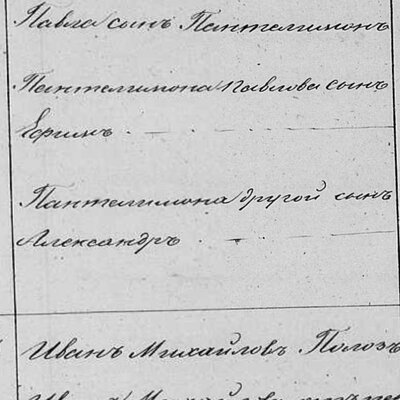 Павла сынъ Пантелимонъ
Пантелимона Павлова сынъ
Ефимъ
Пантелимона другой сынъ
Александръ
Иванъ Михайловъ Полозъ